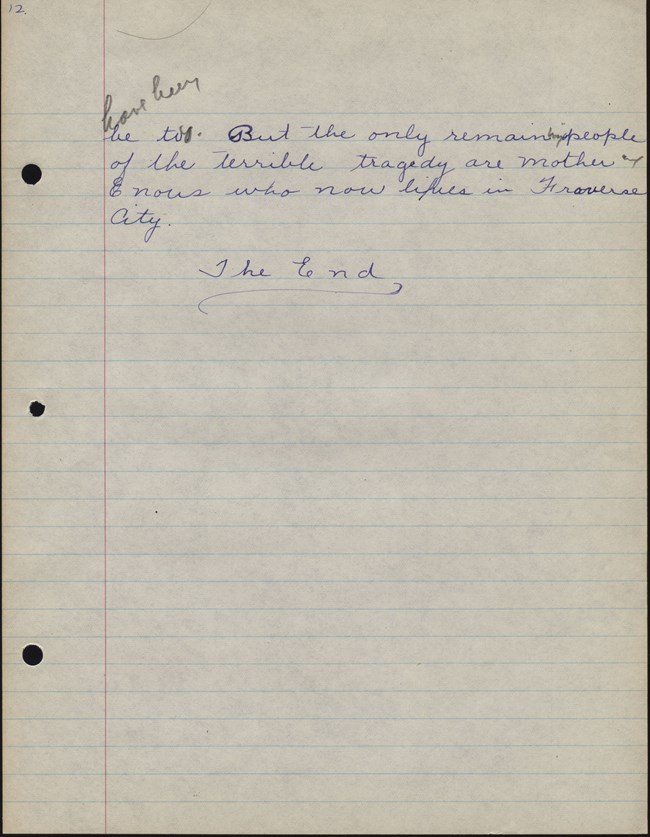 12.
have been
be too. But the only remaining people
of the terrible tragedy are mother &
Enous who now lives in Traverse
City.
The End